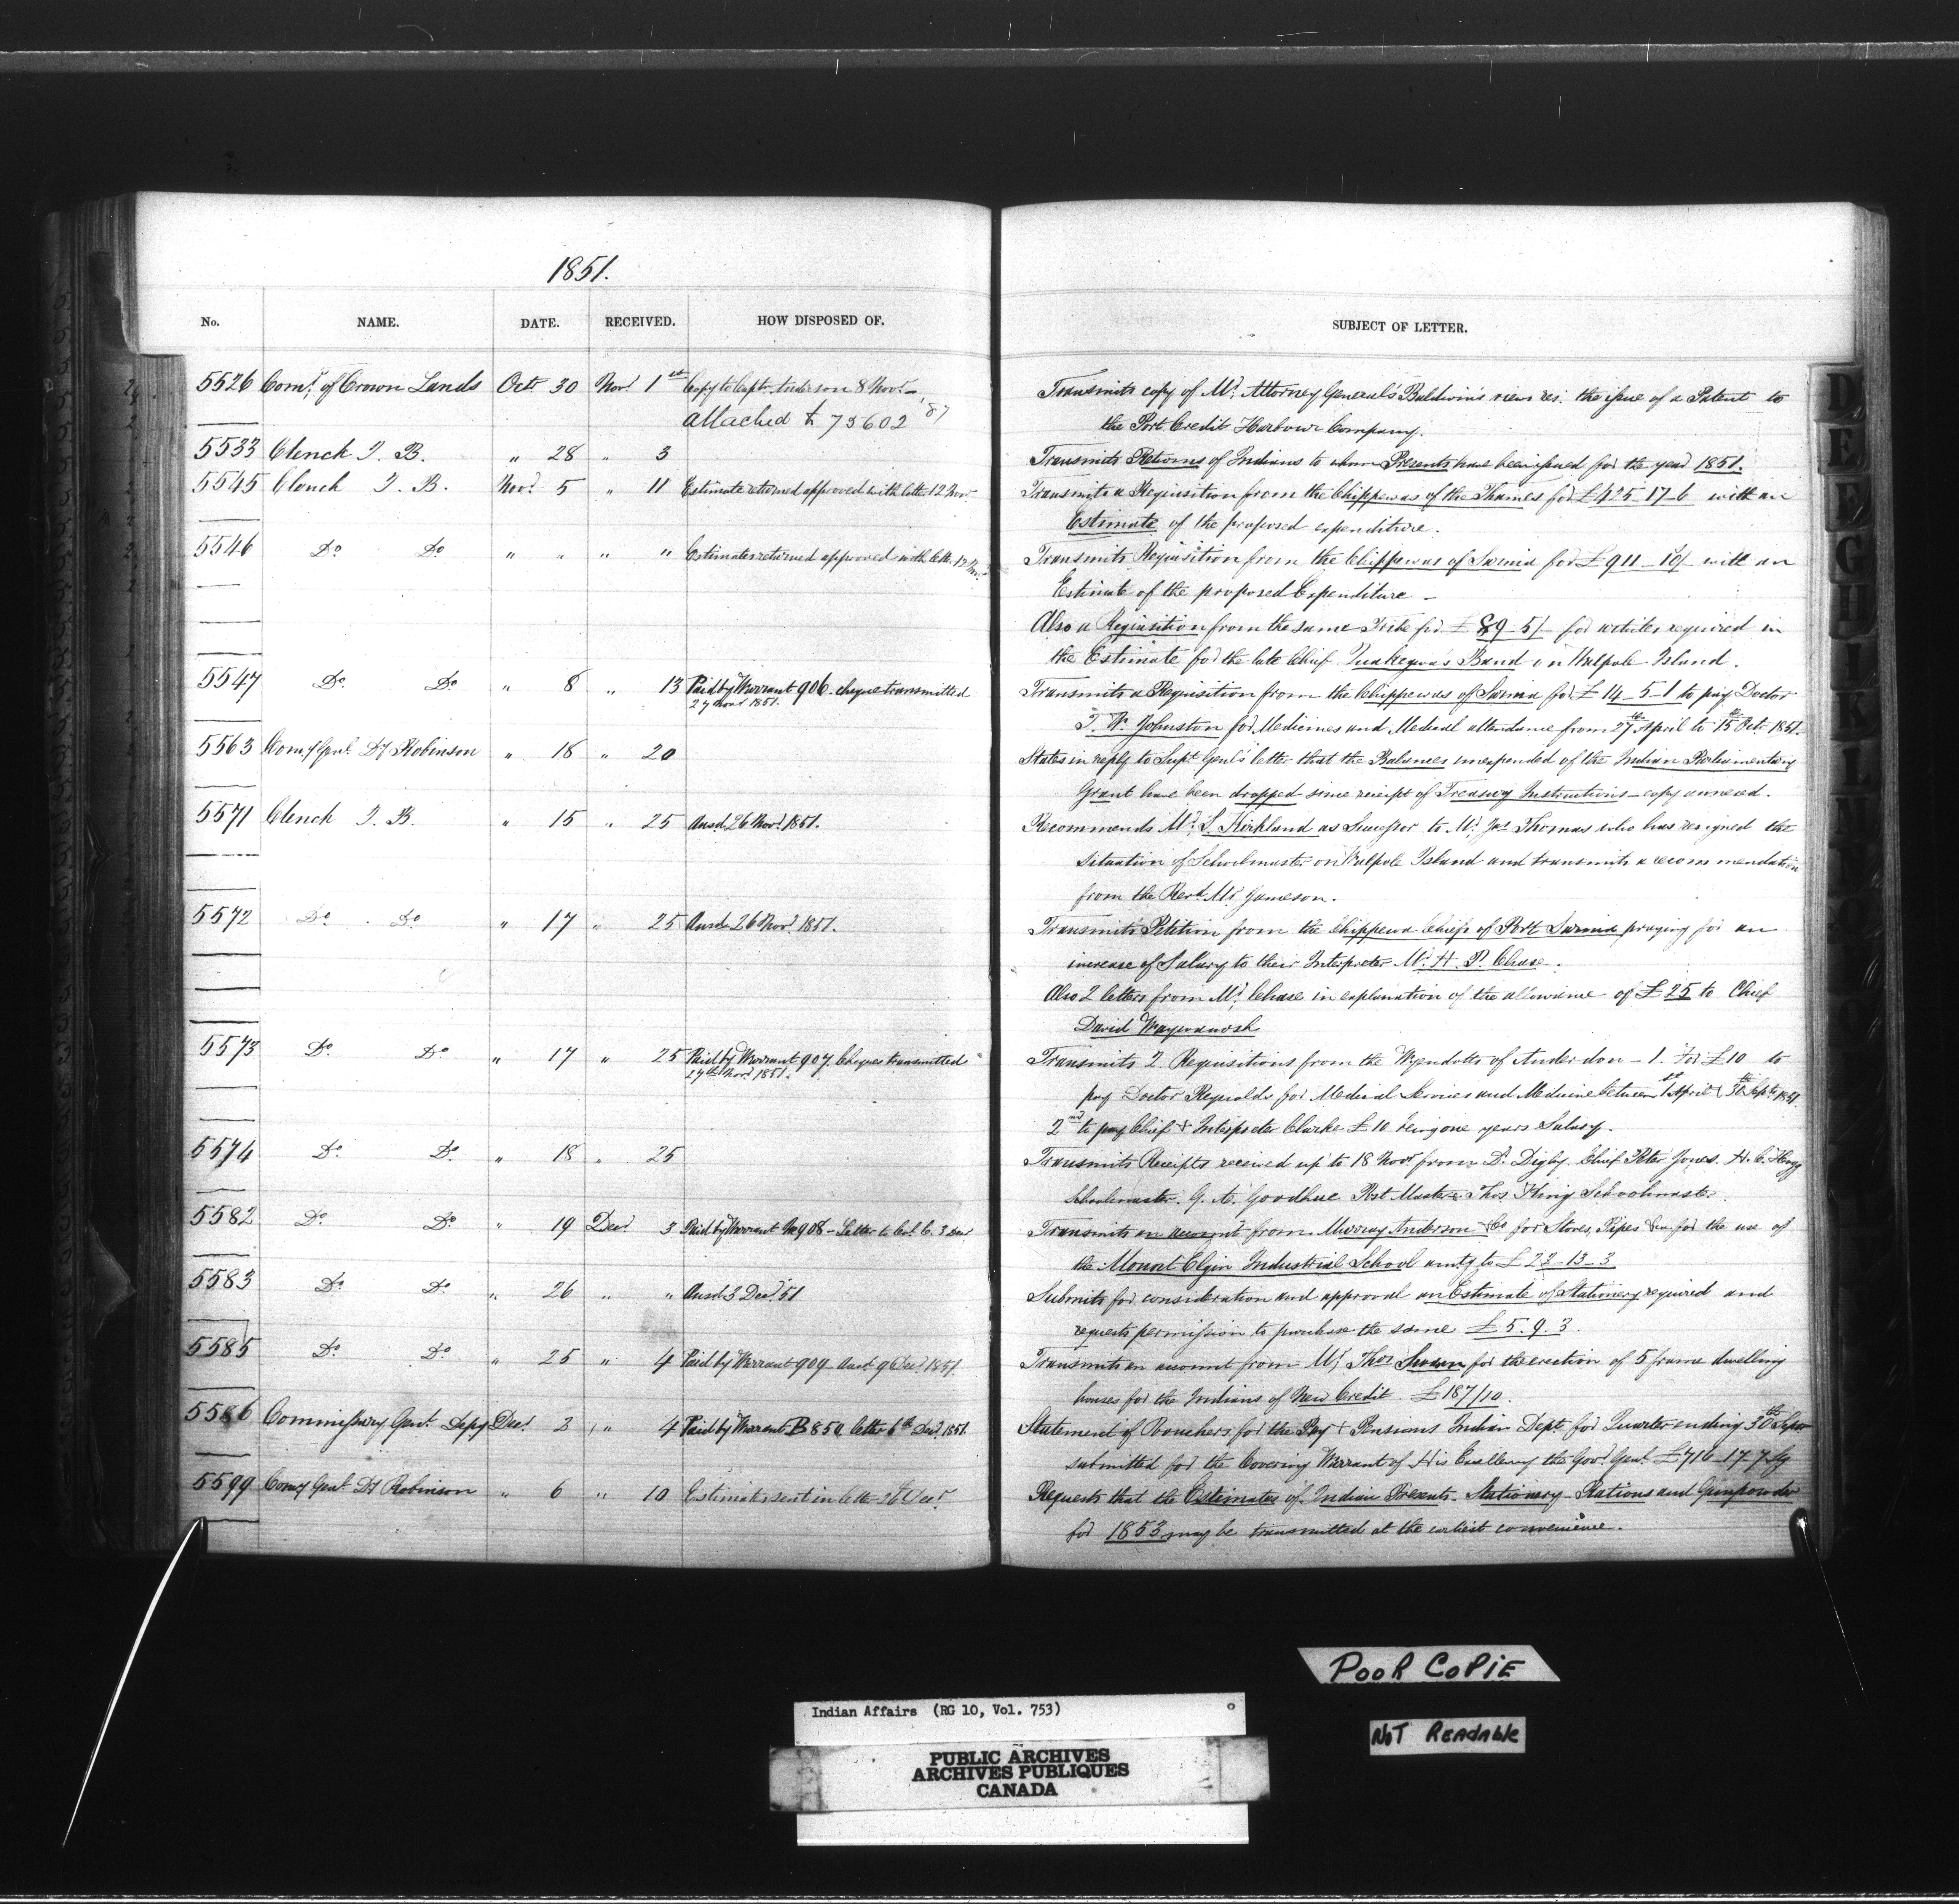 1851.
No. NAME. DATE. RECEIVED. HOW DISPOSED OF. SUBJECT OF LETTER.
5526 Comr. of Crown Lands Octr 30 Novr 1st Copy to Capt. Anderson 8 Novr. — Transmits copy of Mr. Attorney General's Baldwin's views res. the issue of a Patent to
Attached to 75602 '87 the Port Credit Harbour Company.
5533 Clench J. B. " 28 " 3 Transmits Returns of Indians to whom Presents have been issued for the year 1851.
5545 Clench J. B. Novr 5 " 11 Estimate returned approved with letter 12 Nov Transmits a Requisition from the Chippewas of the Thames for £425-17-6 with an
Estimate of the proposed expenditure.
5546 Do Do " " " " Estimates returned approved with letter 12 Novr Transmits Requisition from the Chippewas of Sarnia for £911-10/ with an
Estimate of the proposed Expenditure —
Also a Requisition from the same Tribe for £89-5/- for articles required in
the Estimate for the late Chief Band on Walpole Island.
5547 Do Do " 8 " 13 Paid by Warrant 906. cheque transmitted Transmits a Requisition from the Chippewas of Sarnia for £14-5-1 to pay Doctor
27 Novr 1851. T. W. Johnston for Medicines and Medical attendance from 27th April to 15th Octr 1851.
5563 Comy Genl. Dy Robinson " 18 " 20 States in reply to Supt Genl's letter that the Balances unexpended of the Indian Parliamentary
Grant have been dropped since receipt of Treasury Instructions — copy annexed.
5571 Clench J. B. " 15 " 25 Ansd. 26 Novr 1851. Recommends Mr. S. Kirkland as Successor to Mr. Jas Thomas who has resigned the
situation of Schoolmaster on Walpole Island and transmits a recommendation
from the Revd. Mr. Jameson.
5572 Do Do " 17 " 25 Ansd 26 Novr 1851. Transmits Petition from the Chippewa Chiefs of Port Sarnia praying for an
increase of Salary to their Interpreter Mr. H. P. Chase.
Also 2 letters from Mr. Chase in explanation of the allowance of £25 to Chief
David Wawanosh
5573 Do Do " 17 " 25 Paid by Warrant 907. Cheques transmitted Transmits 2. Requisitions from the Wyandotts of Anderdon — 1. For £10 to
27th Novr 1851. pay Doctor Reynolds for Medical Services and Medicine between 1st April & 30th Septr 1851.
2nd to pay Chief & Interpreter Clarke £10 being one years Salary.
5574 Do Do " 18 " 25 Transmits Receipts received up to 18 Novr from Dr. Digby. Chief Peter Jones. H. C. Hogg
Schoolmaster. G. A. Goodhue Post Master & Thos King Schoolmaster.
5582 Do Do " 19 Decr 3 Paid by Warrant No 908 — Letter to Col. C. 3 Decr Transmits an account from Murray Anderson & Co for Stoves, Pipes &c. for the use of
the Mount Elgin Industrial School amtg to £22-13-3
5583 Do Do " 26 " " Ansd 3 Decr 51 Submits for consideration and approval an Estimate of Stationery required and
requests permission to purchase the same £5.9.3.
5585 Do Do " 25 " 4 Paid by Warrant 909 Ansd. 9 Decr 1851. Transmits an account from Mr. Thos for the erection of 5 frame dwelling
houses for the Indians of New Credit. £187/10.
5586 Commissary Genl. Depy Decr. 2 " 4 Paid by Warrant B 850. letter 6th Decr 1851. Statement of Vouchers for the Pay & Pensions Indian Dept. for Quarter ending 30th Septr
submitted for the Covering Warrant of His Excellency the Govr Genl. £716-17-7 Sg
5599 Comy Genl. Dy Robinson " 6 " 10 Estimates sent in letter 26 Decr Requests that the Estimates of Indian Presents. Stationery — Rations and Gunpowder
for 1853 may be transmitted at the earliest convenience.
D
E
F
G
H
I
K
L
POOR COPIE
NOT READABLE
Indian Affairs (RG 10, Vol. 753)
PUBLIC ARCHIVES
ARCHIVES PUBLIQUES
CANADA